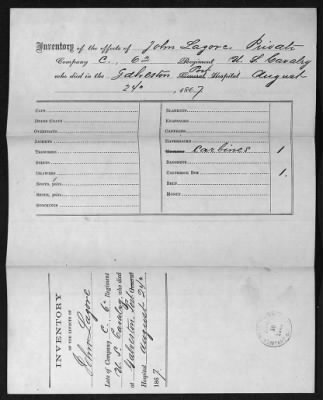 Inventory of the effects of John Lagore. Private
Company C., 6th Regiment U. S. Cavalry
who died in the Galveston Post General Hospital August
24th, 1867
CAPS,
DRESS COATS
OVERCOATS
JACKETS
TROUSERS
SHIRTS
DRAWERS
BOOTS, pairs
SHOES, pairs
STOCKINGS
BLANKETS,
KNAPSACKS
CANTEENS
HAVERSACKS
Carbines 1
BAYONETS
CARTRIDGE BOX 1.
BELT
MONEY
INVENTORY
OF THE EFFECTS OF
John Lagore
Late of Company C, 6th Regiment
U. S. Cavalry, who died
at Galveston, General
Hospital, August 24th
1867.